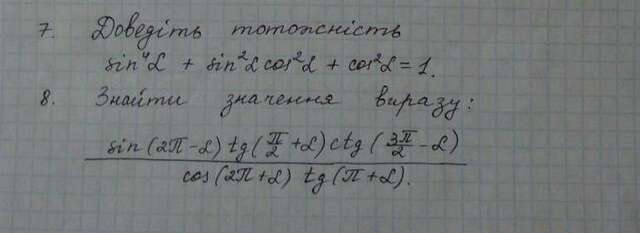 7. Доведіть тотожність
sin⁴α + sin²α cos²α + cos²α = 1.
8. Знайти значення виразу:
sin(2π-α) tg(π/2 + α) ctg(3π/2 - α)
cos(2π+α) tg(π+α).